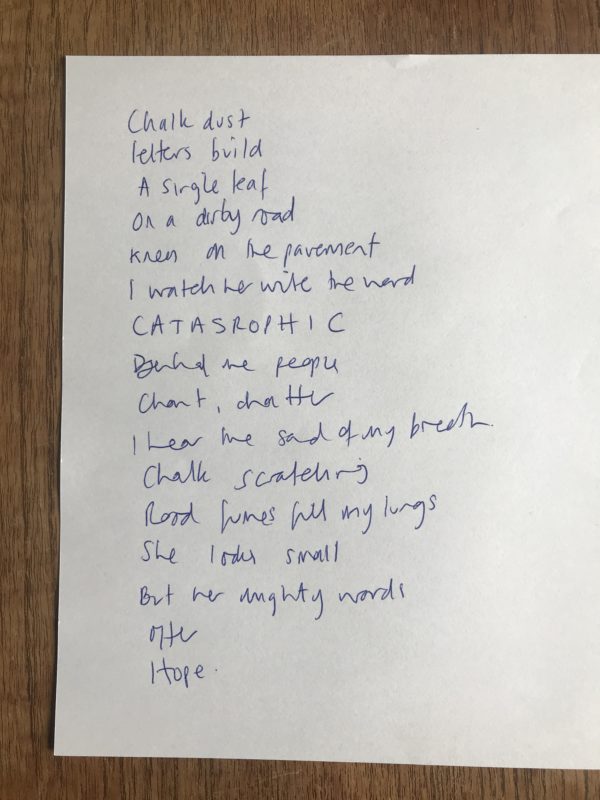 Chalk dust
letters build
A single leaf
On a dirty road
Knees on the pavement
I watch her write the word
CATASROPHIC
Behind me people
Chant, chatter
I hear the sound of my breath.
Chalk scratching
Road fumes fill my lungs
She looks small
But her mighty words
offer
Hope.